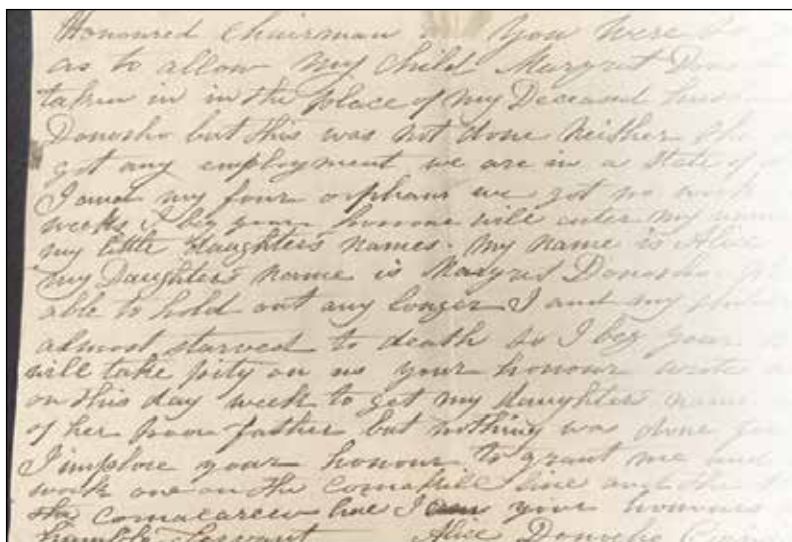 Honoured Chairman You were
as to allow my child Margret
taken in in the place of my Deceased
Donosho but this was not done neither
got any employment we are in a state of
I and my four orphans we got no work
weeks I beg your honour will enter my name
my little daughters names. my name is Alice
my Daughters name is Margret Donosho
able to hold out any longer I and my
almost starved to death so I beg your
will take pity on us your honour wrote
on this day week to get my daughters name
of her poor father but nothing was done
I implore your honour to grant me and
work one on the line and the
the line I am your honours
humble Servant Alice Donosho